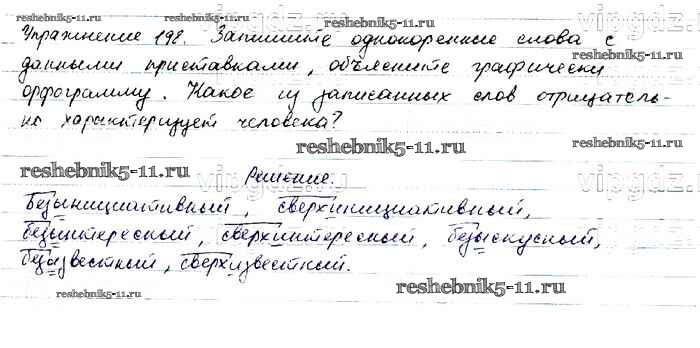 reshebnik5-11.ru reshebnik5-11.ru vipgdz.ru
Упражнение 198. Запишите однокоренные слова с
данными приставками, объясните графически
орфограмму. Какое из записанных слов отрицатель-
но характеризует человека?
reshebnik5-11.ru
reshebnik5-11.ru
Решение.
Безынициативный, сверхинициативный,
безынтересный, сверхинтересный, безыскусный,
безызвестный, сверхизвестный.
reshebnik5-11.ru
reshebnik5-11.ru